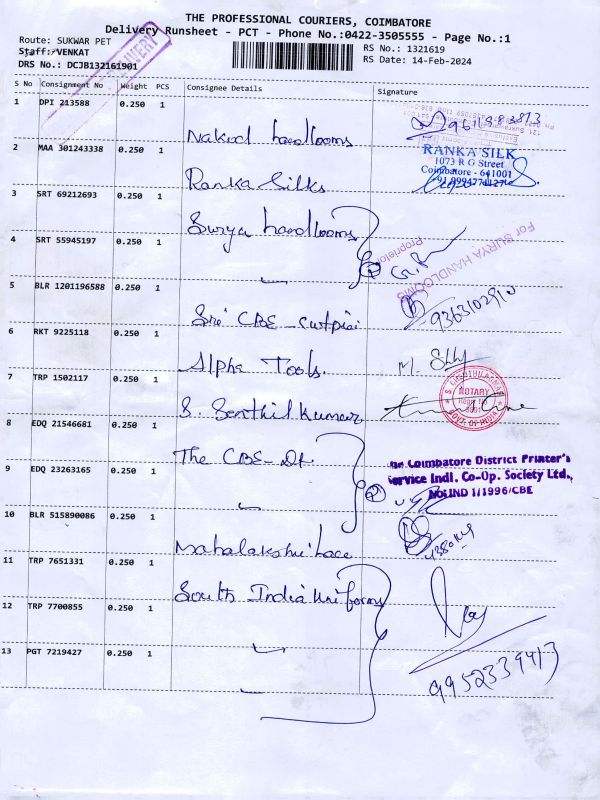 THE PROFESSIONAL COURIERS, COIMBATORE
Delivery Runsheet - PCT - Phone No.:0422-3505555 - Page No.:1
Route: SUKWAR PET
Staff:/VENKAT
DRS No.: DCJB132161901
RS No.: 1321619
RS Date: 14-Feb-2024
S No Consignment No Weight PCS Consignee Details Signature
1 DPI 213588 0.250 1
Nakod handlooms
2 MAA 301243338 0.250 1
RANKA SILK
1073 R G Street
Coimbatore - 641001
Ranka Silks
3 SRT 69212693 0.250 1
Surya handlooms
4 SRT 55945197 0.250 1
For SURYA HANDLOOMS
Proprietor
5 BLR 1201196588 0.250 1
9363102910
Sri CBE - cutpiai
6 RKT 9225118 0.250 1
Alpha Tools.
7 TRP 1502117 0.250 1
NOTARY
GOVT. OF INDIA
S. Senthil kumar
8 EDQ 21546681 0.250 1
The CBE - Dt
The Coimbatore District Printer's
Service Indl. Co-Op. Society Ltd.,
No:IND 1/1996/CBE
9 EDQ 23263165 0.250 1
10 BLR 515890086 0.250 1
Mahalakshmi lace
11 TRP 7651331 0.250 1
South India uniforms
12 TRP 7700855 0.250 1
13 PGT 7219427 0.250 1
9952339413